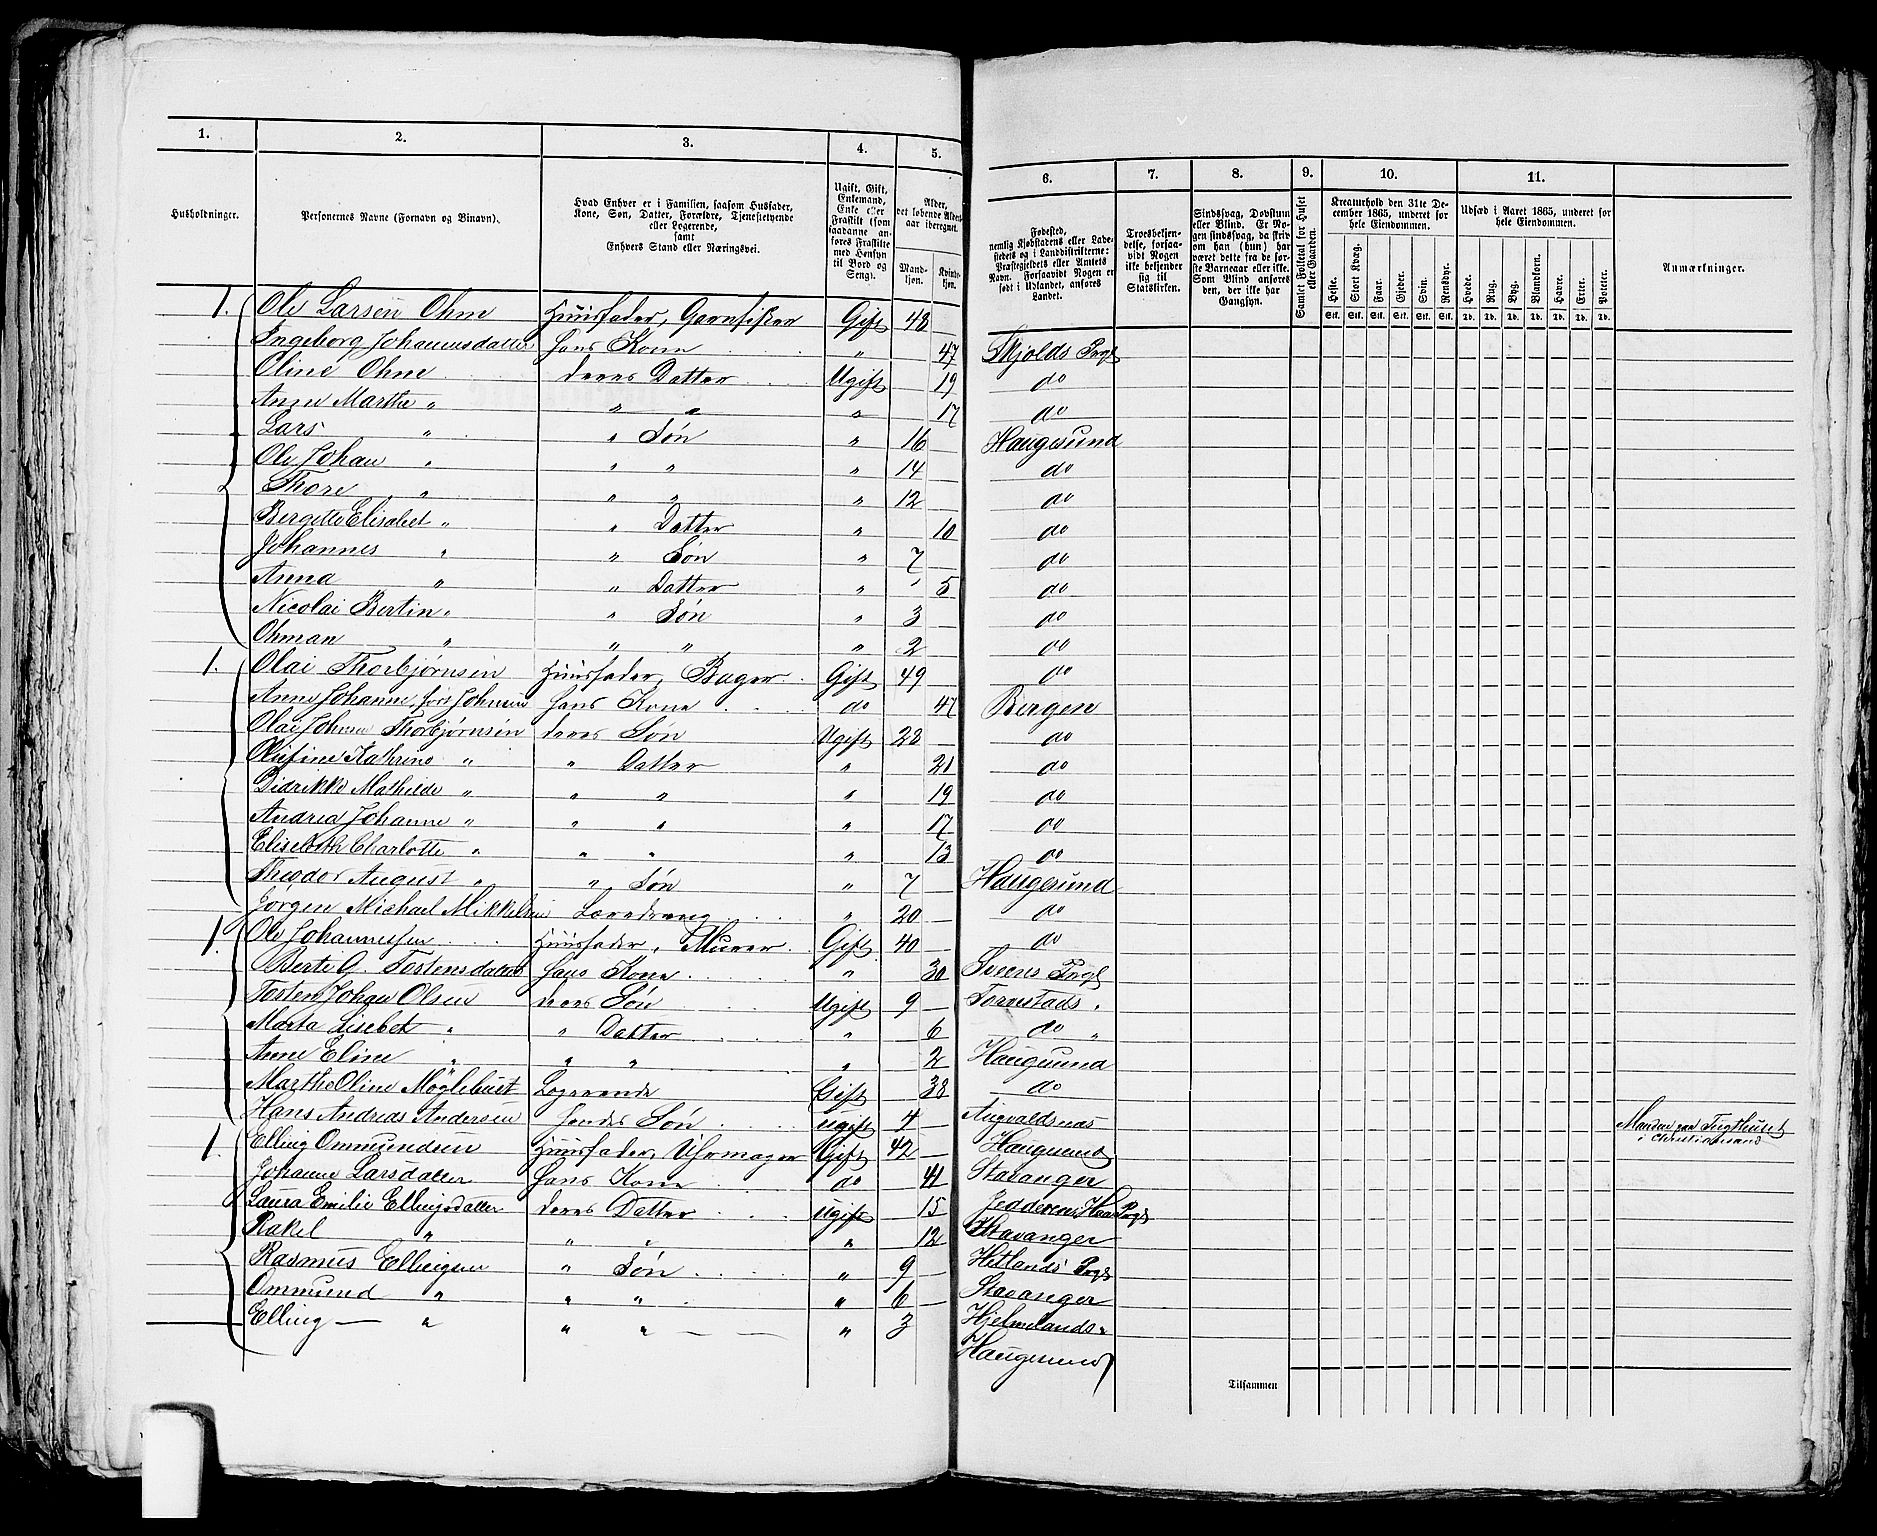 1. 2. 3. 4. 5. 6. 7. 8. 9. 10. 11.
Husholdninger.
Personernes Navne (Fornavn og Binavn).
Hvad Enhver er i Familien, saasom Husfader,
Kone, Søn, Datter, Forældre, Tjenestetyende
eller Logerende,
samt
Enhvers Stand eller Næringsvei.
Ugift, Gift,
Enkemand,
Enke eller
Fraskilt (som
saadanne an-
føres Fraskilte
med Hensyn
til Bord og
Seng).
Alder,
det løbende Alders-
aar iberegnet.
Mand-
kjøn.
Kvinde-
kjøn.
Fødested,
nemlig Kjøbstadens eller Lade-
stedets og i Landdistrikterne:
Præstegjeldets eller Amtets
Navn. Forsaavidt Nogen er
født i Udlandet, anføres
Landet.
Troesbekjen-
delse, forsaa-
vidt Nogen
ikke bekjender
sig til
Statskirken.
Sindssvag, Døvstum
eller Blind. Er No-
gen sindssvag, da skriv
om han (hun) har
været dette fra de før-
ste Barneaar eller ikke.
Som Blind anføres
den, der ikke har
Gangsyn.
Samlet Folketal for Huset
eller Gaarden.
Kreaturhold den 31te De-
cember 1865, underet for
hele Eiendommen.
Heste. Stort Kvæg. Faar. Gjeder. Svin. Rensdyr.
Stk. Stk. Stk. Stk. Stk. Stk.
Udsæd i Aaret 1865, underet for
hele Eiendommen.
Hvede. Rug. Byg. Blandkorn. Havre. Erter. Poteter.
Td. Td. Td. Td. Td. Td. Td.
Anmærkninger.
1. Ole Larsen Ohme Huusfader, Garnfisker Gift 48 Skjolds Prgl
Ingeborg Johannesdatter hans Kone " 47 do
Oline Ohne deres Datter Ugift 19 do
Anne Marthe " " " " 17 Haugesund
Lars " " Søn " 16 do
Ole Johan " " " " 14 do
Thore " " " " 12 do
Bergitte Elisabet " " Datter " 10 do
Johannes " " Søn " 7 do
Anna " " Datter " 5 do
Nicolai Bertin " " Søn " 3 do
Ohman " " " " 2 do
1. Olai Thorbjørnsen Huusfader, Bager Gift 49 Bergen
Anne Johanne, før Johnsen hans Kone do 47 do
Olai Johan Thorbjørnsen deres Søn Ugift 28 do
Olufine Kathrine " " Datter " 21 do
Didrikke Mathilde " " " " 19 do
Andrea Johanne " " " " 17 do
Elisebeth Charlotte " " " " 13 Haugesund
Theodor August " " Søn " 7 do
Jørgen Michael Mikkelsen Læredreng " 20 do
1. Ole Johannessen Huusfader, Murer Gift 40 Sveens Prgl
Berte G. Tostensdatter hans Kone " 30 Torvestads "
Tosten Johan Olsen deres Søn Ugift 9 do "
Marta Lisebet " " Datter " 6 Haugesund
Anne Eline " " " " 2 do
Marthe Oline Møglebust Logerende Gift 38 Augvaldsnæs
Hans Andreas Andersen hendes Søn ugift 4 Haugesund
Manden paa Tugthuuset
i Christianssand
1. Elling Ommundsen Huusfader, Uhrmager Gift 42 Stavanger
Johanne Larsdatter hans Kone do 41 Jedderen, Haa Prgl
Laura Emilie Ellingsdatter deres Datter ugift 15 Stavanger
Rakel " " " " 12 Hetlands Prgl
Rasmus Ellingsen " Søn " 9 Stavanger
Ommund " " " " 6 Hjelmelands "
Elling " " " " 3 Haugesund
Tilsammen